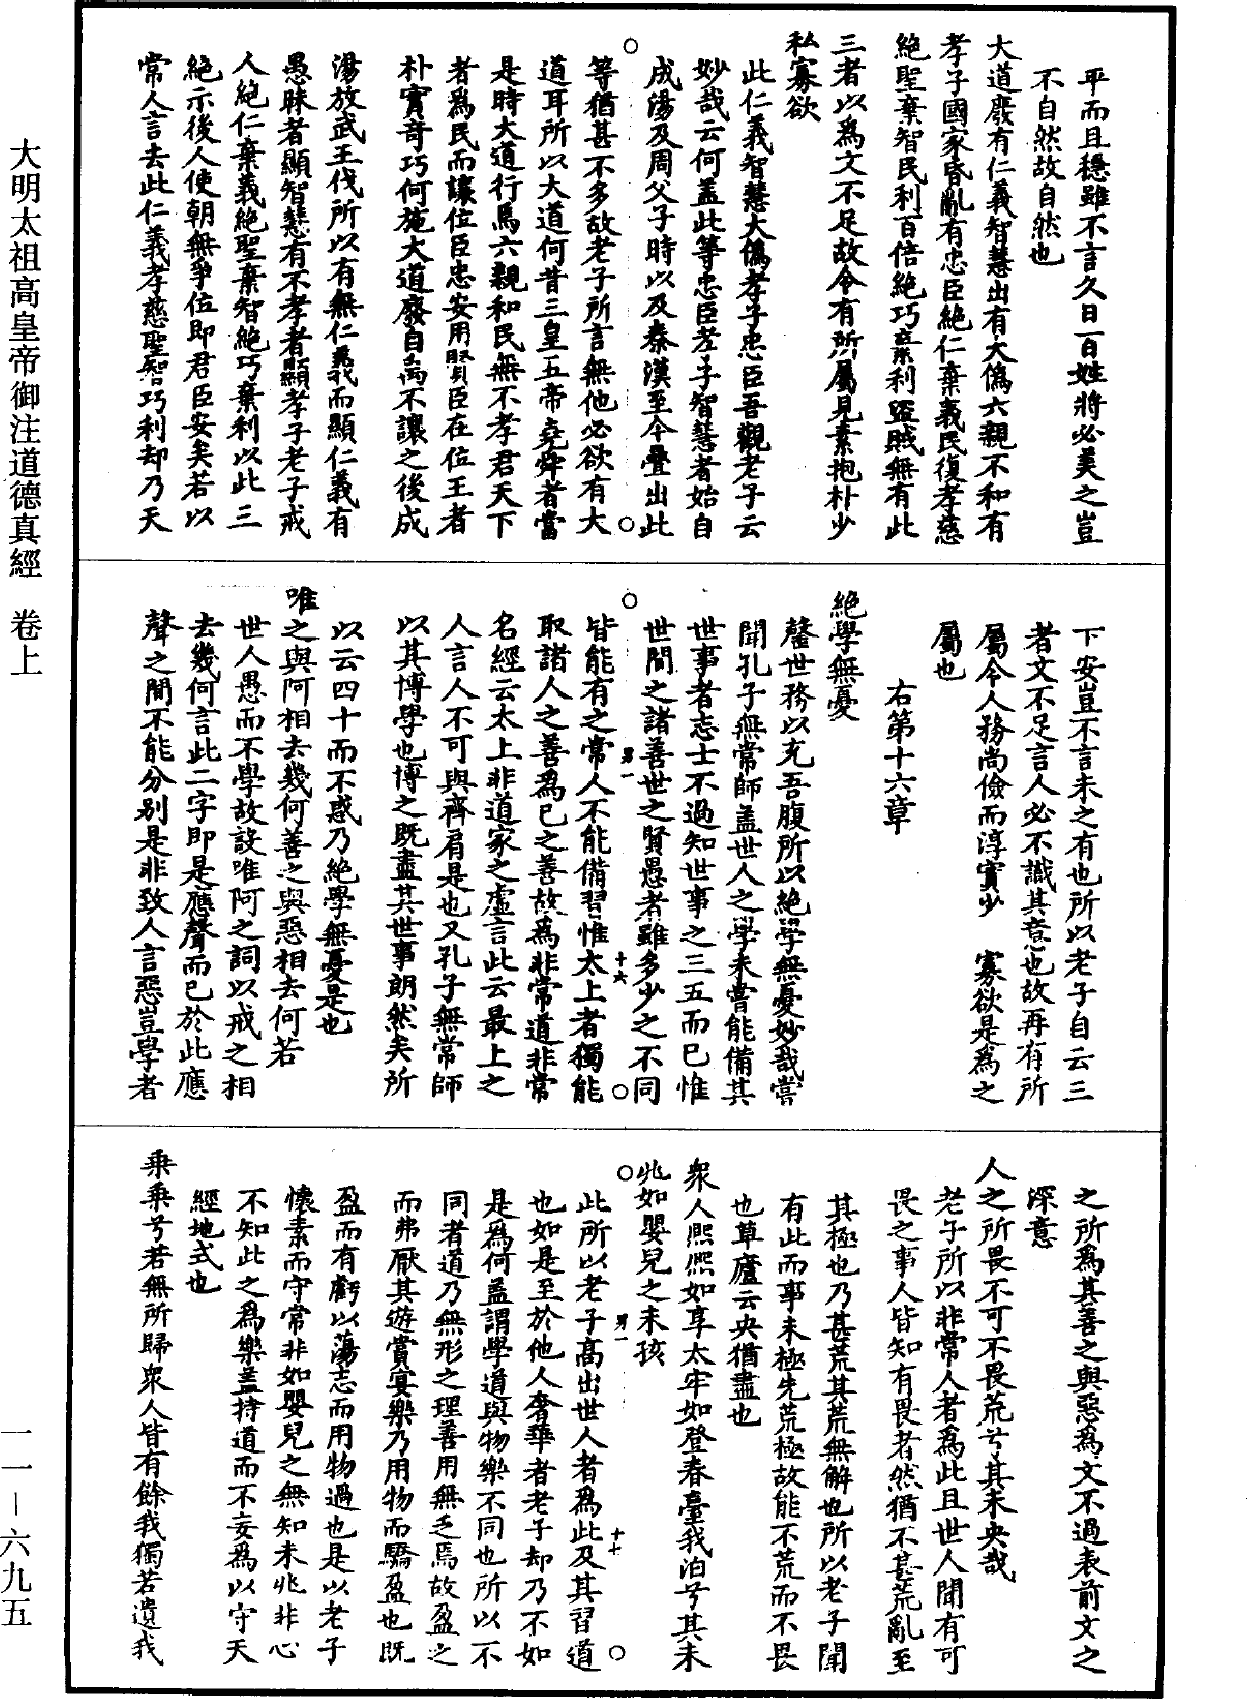 平而且穩雖不言久日一百姓將必美之豈
不自然故自然也
大道廢有仁義智慧出有大偽六親不和有
孝子國家昏亂有忠臣絕仁棄義民復孝慈
絕聖棄智民利百倍絕巧棄利盜賊無有此
三者以為文不足故令有所屬見素抱朴少
私寡欲
此仁義智慧大偽孝子忠臣吾觀老子云
妙哉云何盖此等忠臣孝子智慧者始自
成湯及周父子時以及秦漢至今疊出此
等猶甚不多故老子所言無他必欲有大
道耳所以大道何昔三皇五帝堯舜者當
是時大道行焉六親和民無不孝君天下
者為民而讓位臣忠安用賢臣在位王者
朴實奇巧何施大道廢自禹不讓之後成
湯放武王伐所以有無仁義而顯仁義有
愚昧者顯智慧有不孝者顯孝子老子戒
人絕仁棄義絕聖棄智絕巧棄利以此三
絕示後人使朝無爭位即君臣安矣若以
常人言去此仁義孝慈聖智巧利却乃天
下安豈不言未之有也所以老子自云三
者文不足言人必不識其意也故再有所
屬令人務尚儉而淳實少　寡欲是為之
屬也
右第十六章
絕學無憂
罄世務以充吾腹所以絕學無憂妙哉嘗
聞孔子無常師盖世人之學未嘗能備其
世事者志士不過知世事之三五而已惟
世間之諸善世之賢愚者雖多少之不同
皆能有之常人不能備習惟太上者獨能
取諸人之善為已之善故為非常道非常
名經云太上非道家之虛言此云最上之
人言人不可與齊肩是也又孔子無常師
以其博學也博之既盡其世事朗然矣所
以云四十而不惑乃絕學無憂是也
唯之與阿相去幾何善之與惡相去何若
世人愚而不學故設唯阿之詞以戒之相
去幾何言此二字即是應聲而已於此應
聲之間不能分別是非致人言惡豈學者
之所為其善之與惡為文不過表前文之
深意
人之所畏不可不畏荒兮其未央哉
老子所以非常人者為此且世人聞有可
畏之事人皆知有畏者然猶不甚荒亂至
其極也乃甚荒其荒無解也所以老子聞
有此而事未極先荒極故能不荒而不畏
也草廬云央猶盡也
衆人熙熙如享太牢如登春臺我泊兮其未
兆如嬰兒之未孩
此所以老子高出世人者為此及其習道
也如是至於他人奢華者老子却乃不如
是為何盖謂學道與物樂不同也所以不
同者道乃無形之理善用無乏焉故盈之
而弗厭其遊賞宴樂乃用物而驕盈也既
盈而有虧以蕩志而用物過也是以老子
懷素而守常非如嬰兒之無知未兆非心
不知此之為樂盖持道而不妄為以守天
經地式也
乘乘兮若無所歸衆人皆有餘我獨若遺我
大明太祖高皇帝御注道德真經　卷上
一一－六九五
十六
十七